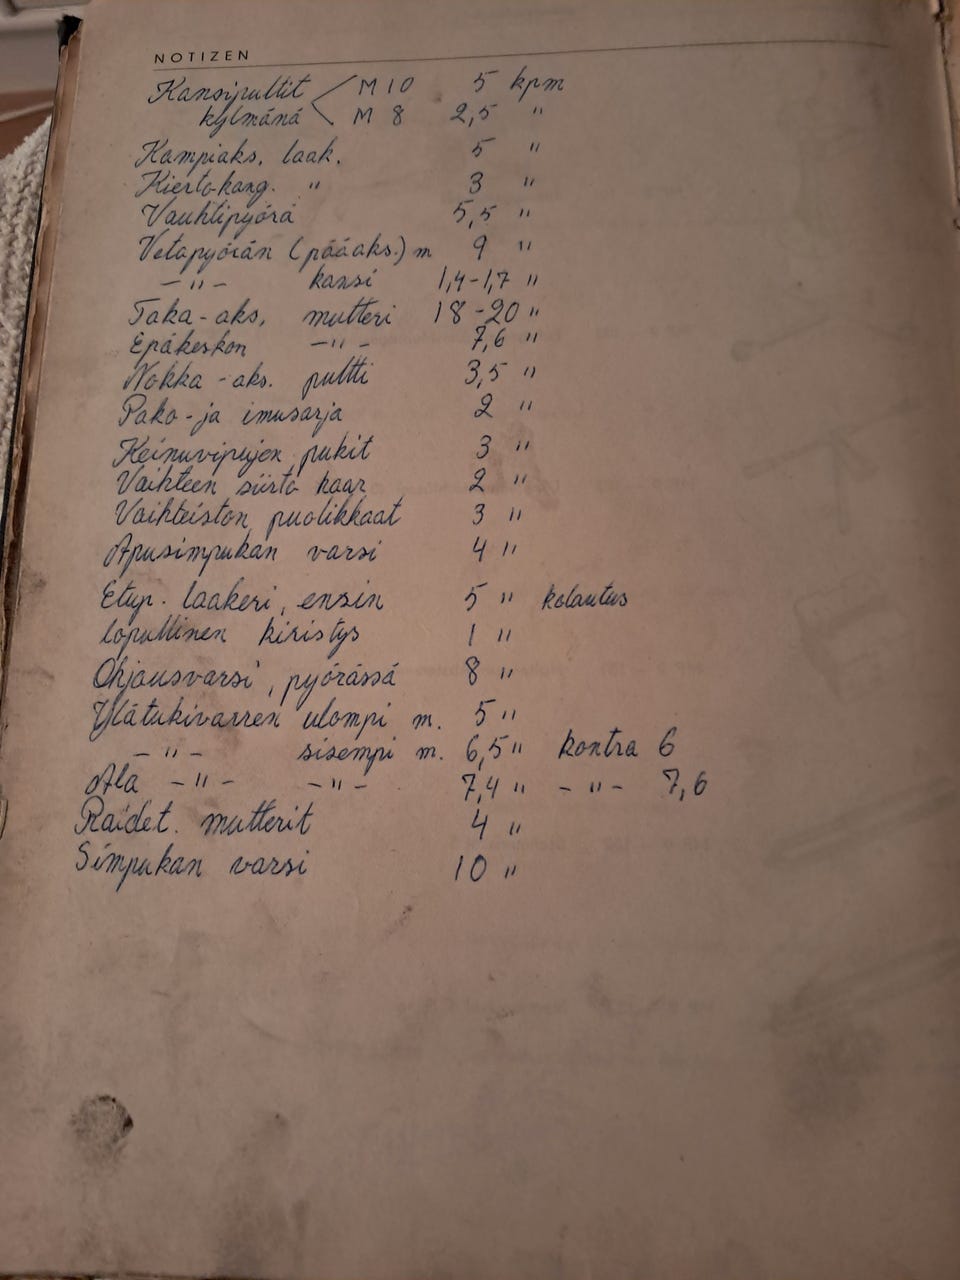 NOTIZEN
Kansipultit < M 10 5 kpm
kylmänä M 8 2,5 "
Kampiaks. laak. 5 "
Kiertokang. " 3 "
Vauhtipyörä 5,5 "
Vetopyörän (pääaks.) m 9 "
- " - kansi 1,4-1,7 "
Taka-aks. mutteri 18-20 "
Epäkeskon - " - 7,6 "
Nokka-aks. pultti 3,5 "
Pako- ja imusarja 2 "
Keinuvipujen pukit 3 "
Vaihteen siirto kaar 2 "
Vaihteiston puolikkaat 3 "
Apusimpukan varsi 4 "
Etup. laakeri, ensin 5 " kolautus
lopullinen kiristys 1 "
Ohjausvarsi, pyörässä 8 "
Ylätukivarren ulompi m. 5 "
- " - sisempi m. 6,5 " kontra 6
Ala - " - - " - 7,4 " - " - 7,6
Raidet. mutterit 4 "
Simpukan varsi 10 "